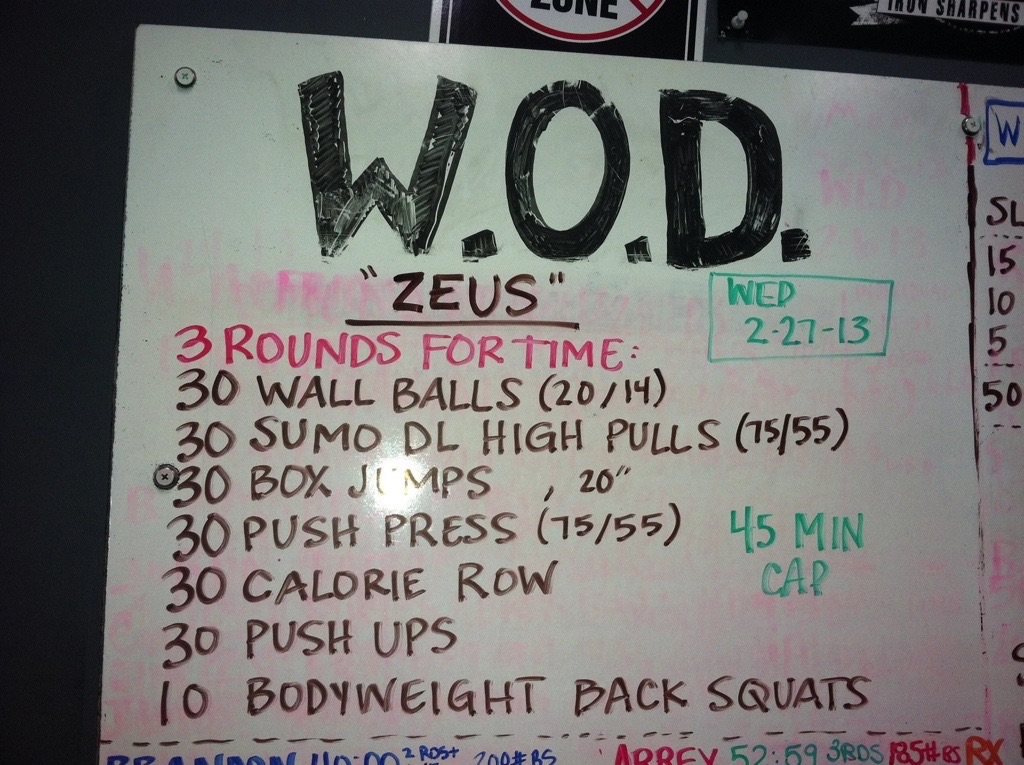 ZONE
IRON SHARPENS
W.O.D.
"ZEUS"
WED
2-27-13
3 ROUNDS FOR TIME:
30 WALL BALLS (20/14)
30 SUMO DL HIGH PULLS (75/55)
30 BOX JUMPS , 20"
30 PUSH PRESS (75/55)
45 MIN
CAP
30 CALORIE ROW
30 PUSH UPS
10 BODYWEIGHT BACK SQUATS
52:59 3RDS 185# BS RX
W
SL
15
10
5
50